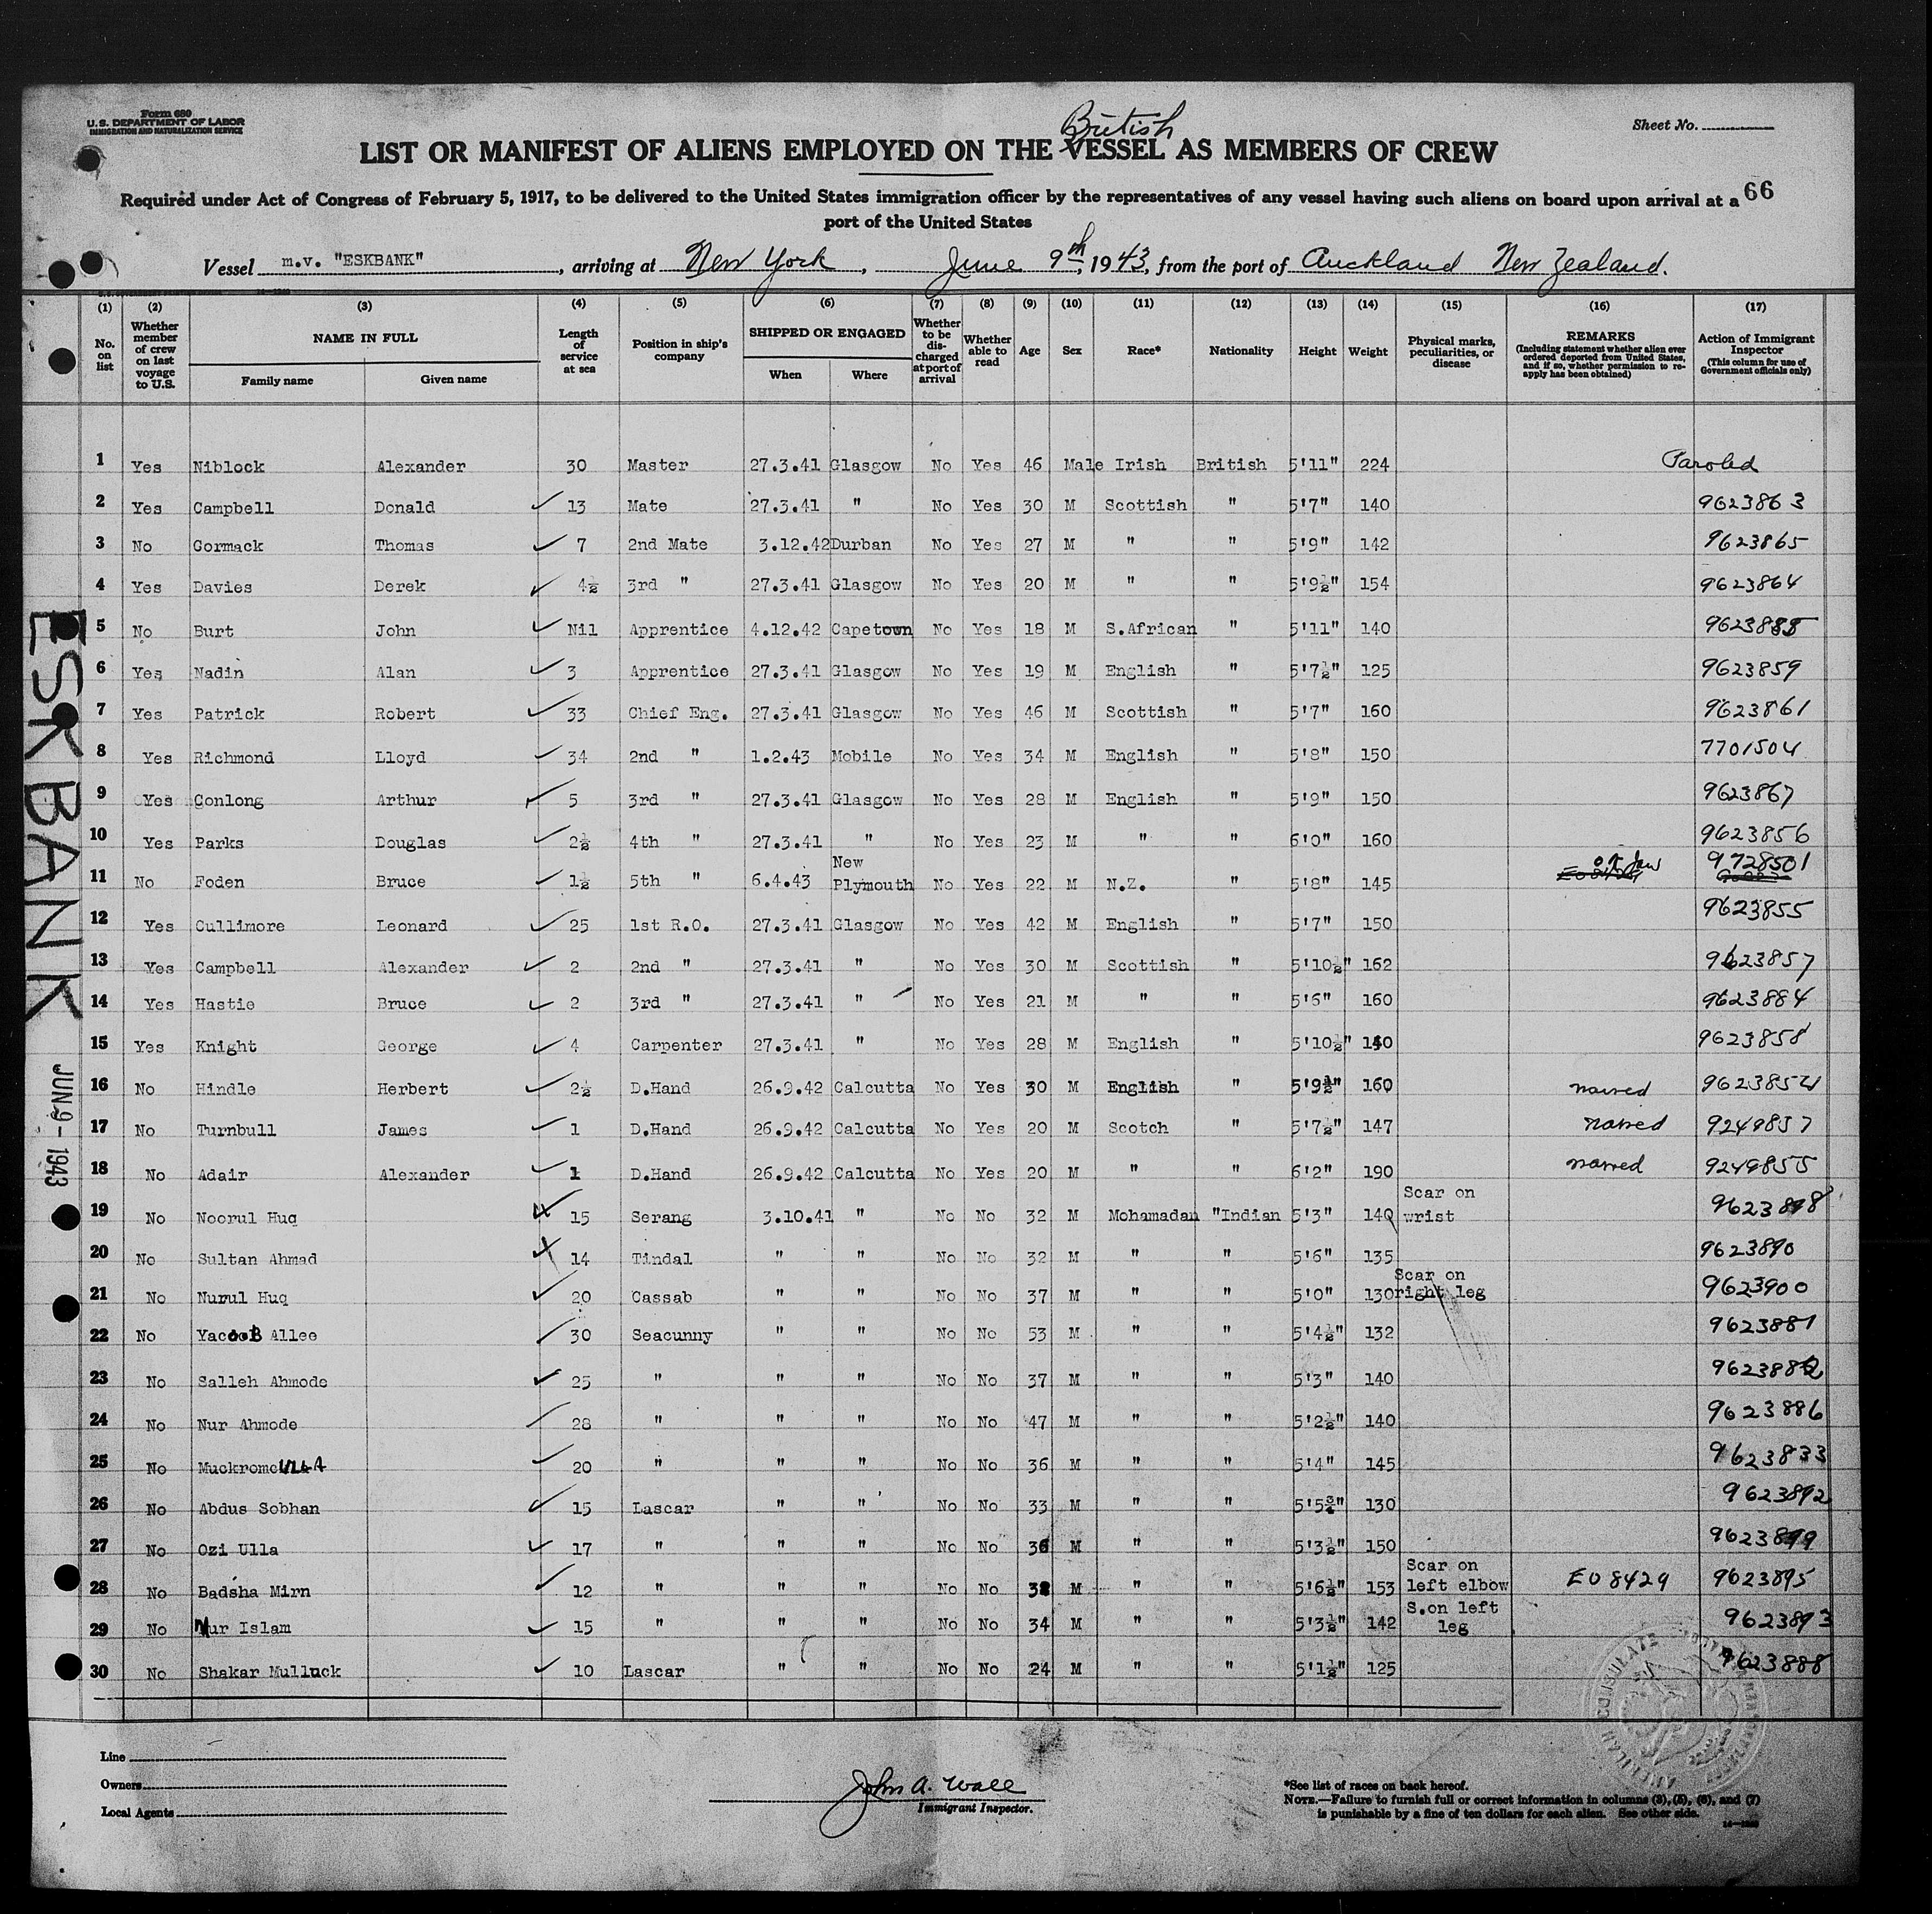 Form 680
U.S. DEPARTMENT OF LABOR
IMMIGRATION AND NATURALIZATION SERVICE
Sheet No.
British
LIST OR MANIFEST OF ALIENS EMPLOYED ON THE VESSEL AS MEMBERS OF CREW
66
Required under Act of Congress of February 5, 1917, to be delivered to the United States immigration officer by the representatives of any vessel having such aliens on board upon arrival at a
port of the United States
Vessel m.v. "ESKBANK", arriving at New York, June 9th, 1943, from the port of Auckland New Zealand.
(1) (2) (3) (4) (5) (6) (7) (8) (9) (10) (11) (12) (13) (14) (15) (16) (17)
No. on list
Whether member of crew on last voyage to U.S.
NAME IN FULL
Family name Given name
Length of service at sea
Position in ship's company
SHIPPED OR ENGAGED
When Where
Whether to be discharged at port of arrival
Whether able to read
Age
Sex
Race*
Nationality
Height
Weight
Physical marks, peculiarities, or disease
REMARKS
(Including statement whether alien ever ordered deported from United States, and if so, whether permission to re-apply has been obtained)
Action of Immigrant Inspector
(This column for use of Government officials only)
1 Yes Niblock Alexander 30 Master 27.3.41 Glasgow No Yes 46 Male Irish British 5'11" 224 Paroled
2 Yes Campbell Donald 13 Mate 27.3.41 " No Yes 30 M Scottish " 5'7" 140 9623863
3 No Gormack Thomas 7 2nd Mate 3.12.42 Durban No Yes 27 M " " 5'9" 142 9623865
4 Yes Davies Derek 4½ 3rd " 27.3.41 Glasgow No Yes 20 M " " 5'9½" 154 9623864
5 No Burt John Nil Apprentice 4.12.42 Capetown No Yes 18 M S.African " 5'11" 140 9623885
6 Yes Nadin Alan 3 Apprentice 27.3.41 Glasgow No Yes 19 M English " 5'7½" 125 9623859
7 Yes Patrick Robert 33 Chief Eng. 27.3.41 Glasgow No Yes 46 M Scottish " 5'7" 160 9623861
8 Yes Richmond Lloyd 34 2nd " 1.2.43 Mobile No Yes 34 M English " 5'8" 150 7701504
9 Yes Conlong Arthur 5 3rd " 27.3.41 Glasgow No Yes 28 M English " 5'9" 150 9623867
10 Yes Parks Douglas 2½ 4th " 27.3.41 " No Yes 23 M " " 6'0" 160 9623856
11 No Foden Bruce 1½ 5th " 6.4.43 New Plymouth No Yes 22 M N.Z. " 5'8" 145 9728501
12 Yes Cullimore Leonard 25 1st R.O. 27.3.41 Glasgow No Yes 42 M English " 5'7" 150 9623855
13 Yes Campbell Alexander 2 2nd " 27.3.41 " No Yes 30 M Scottish " 5'10½" 162 9623857
14 Yes Hastie Bruce 2 3rd " 27.3.41 " No Yes 21 M " " 5'6" 160 9623884
15 Yes Knight George 4 Carpenter 27.3.41 " No Yes 28 M English " 5'10½" 140 9623858
16 No Hindle Herbert 2½ D.Hand 26.9.42 Calcutta No Yes 30 M English " 5'9½" 160 9623854
17 No Turnbull James 1 D.Hand 26.9.42 Calcutta No Yes 20 M Scotch " 5'7½" 147 9249857
18 No Adair Alexander 1 D.Hand 26.9.42 Calcutta No Yes 20 M " " 6'2" 190 9249855
19 No Noorul Huq 15 Serang 3.10.41 " No No 32 M Mohamadan "Indian 5'3" 140 Scar on wrist 9623898
20 No Sultan Ahmad 14 Tindal " " No No 32 M " " 5'6" 135 9623890
21 No Nurul Huq 20 Cassab " " No No 37 M " " 5'0" 130 Scar on right leg 9623900
22 No Yacoob Allee 30 Seacunny " " No No 53 M " " 5'4½" 132 9623881
23 No Salleh Ahmode 25 " " " No No 37 M " " 5'3" 140 9623882
24 No Nur Ahmode 28 " " " No No 47 M " " 5'2½" 140 9623886
25 No MuckromeULLA 20 " " " No No 36 M " " 5'4" 145 9623833
26 No Abdus Sobhan 15 Lascar " " No No 33 M " " 5'5¾" 130 9623892
27 No Ozi Ulla 17 " " " No No 36 M " " 5'3½" 150 9623899
28 No Badsha Mirn 12 " " " No No 38 M " " 5'6½" 153 Scar on left elbow EO 8429 9623895
29 No Nur Islam 15 " " " No No 34 M " " 5'3½" 142 S.on left leg 9623893
30 No Shakar Mulluck 10 Lascar " " No No 24 M " " 5'1½" 125 9623888
ESKBANK
JUN 9 - 1943
Line
Owners
Local Agents
John A. Wall
Immigrant Inspector.
*See list of races on back hereof.
NOTE.—Failure to furnish full or correct information in columns (3), (5), (6), and (7)
is punishable by a fine of ten dollars for each alien. See other side.
AMERICAN CONSULATE